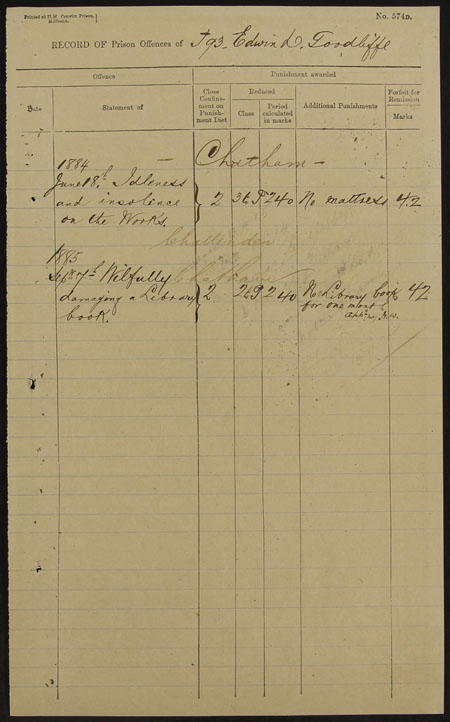 Printed at H.M. Convict Prison,
Millbank.
No. 574D.
RECORD OF Prison Offences of T93. Edwin D. Toodliffe
Offence
Punishment awarded
Date
Statement of
Close Confinement on Punishment Diet
Reduced
Class
Period calculated in marks
Additional Punishments
Forfeit for Remission
Marks
Chatham —
1884
June 18th Idleness
and insolence
on the Works.
2 3 to P 240 No mattress 42
Chattenden
Chatham
1885
Sept 7th Wilfully
damaging a Library
book.
2 2 to P 240 No Library book 42
for one month